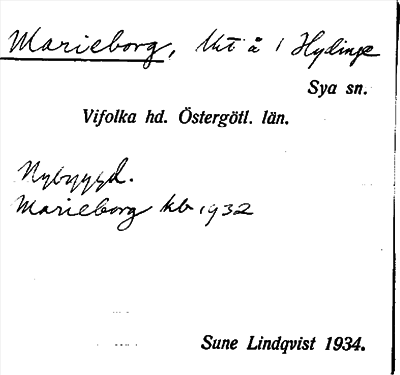 Marieborg, Utj å 1 Hydinge
Sya sn.
Vifolka hd. Östergötl. län.
Nybyggd.
Marieborg kb 1932
Sune Lindqvist 1934.